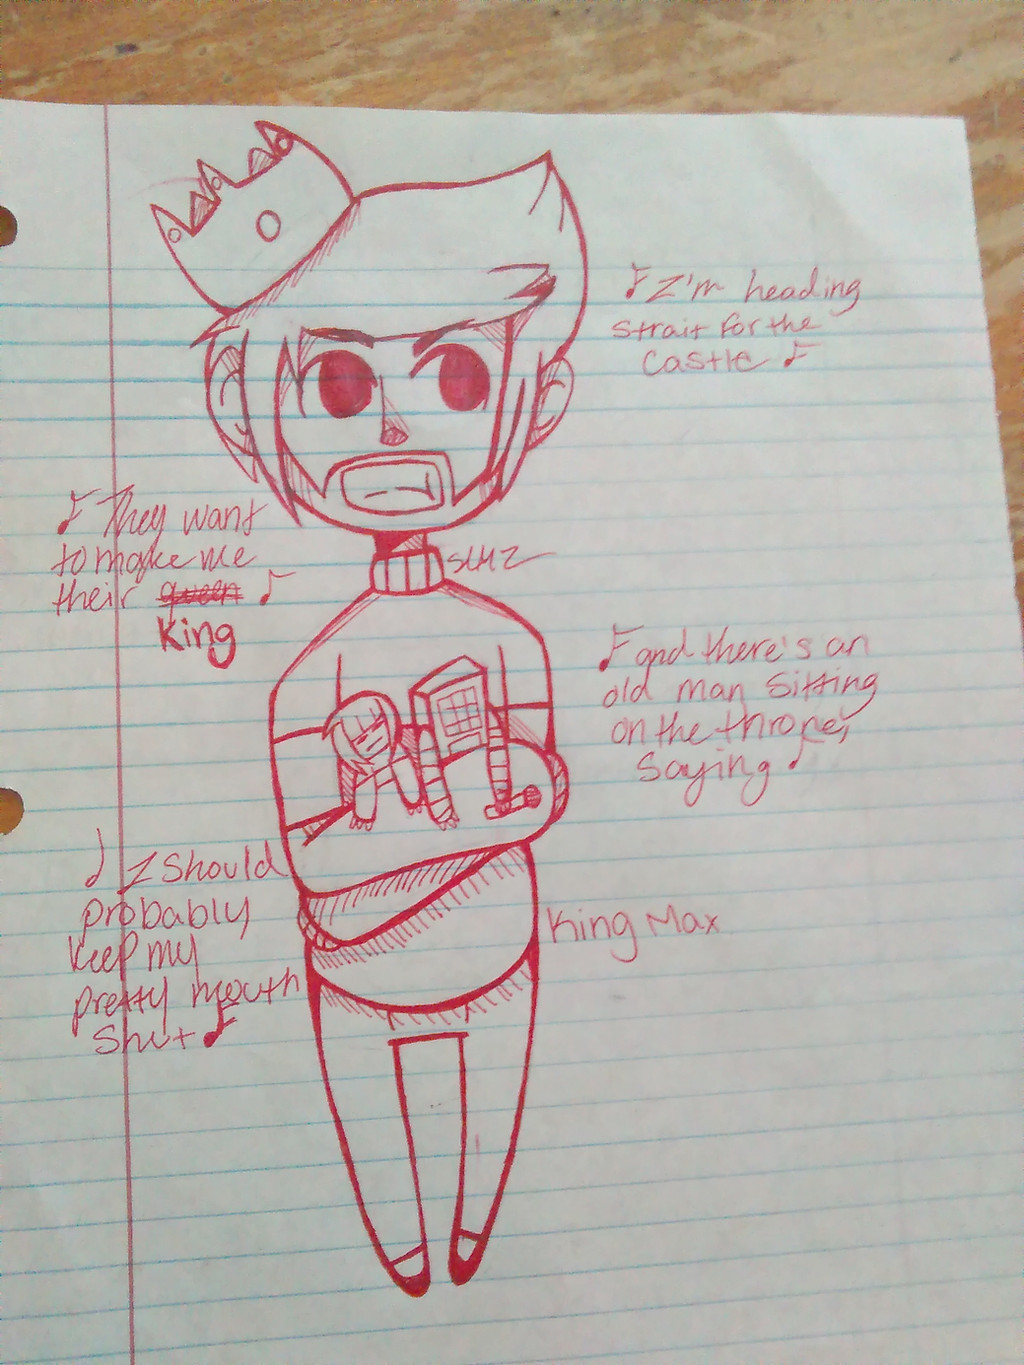 I'm heading
strait for the
castle
They want
to make me
their queen
King
SLMZ
and there's an
old man sitting
on the throne,
saying
I should
probably
keep my
pretty mouth
shut
King Max